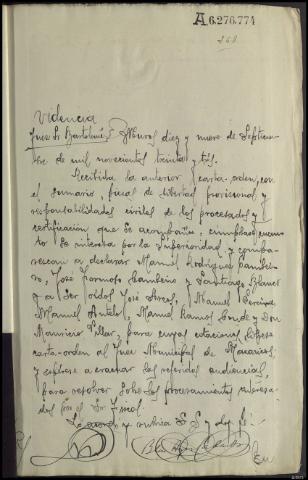 A6.276.774
268
Providencia
Juez Sr. Bartolomé. Muros diez y nueve de Septiem-
bre de mil novecientos treinta y tres.
Recibida la anterior carta-orden, con
el sumario, piezas de libertad provisional y
responsabilidades civiles de los procesados y
certificación que se acompaña, cúmplase cuan-
to se interesa por la Superioridad, y compa-
rezcan a declarar Manuel Rodríguez Lambei-
ro, José Formoso Lambeiro y Santiago Blanco
y a ser oidos José
Manuel Antelo, Manuel Ramos Conde y Don
Mauricio Villar, para cuyas citaciones, líbrese
carta-orden al Juez Municipal de Mazaricos,
y espérese a evacuar las referidas audiencias,
para resolver sobre los procesamientos interesa-
dos por el Sr. Fiscal.
Lo acordó y rubrica S.S. y doy fe.